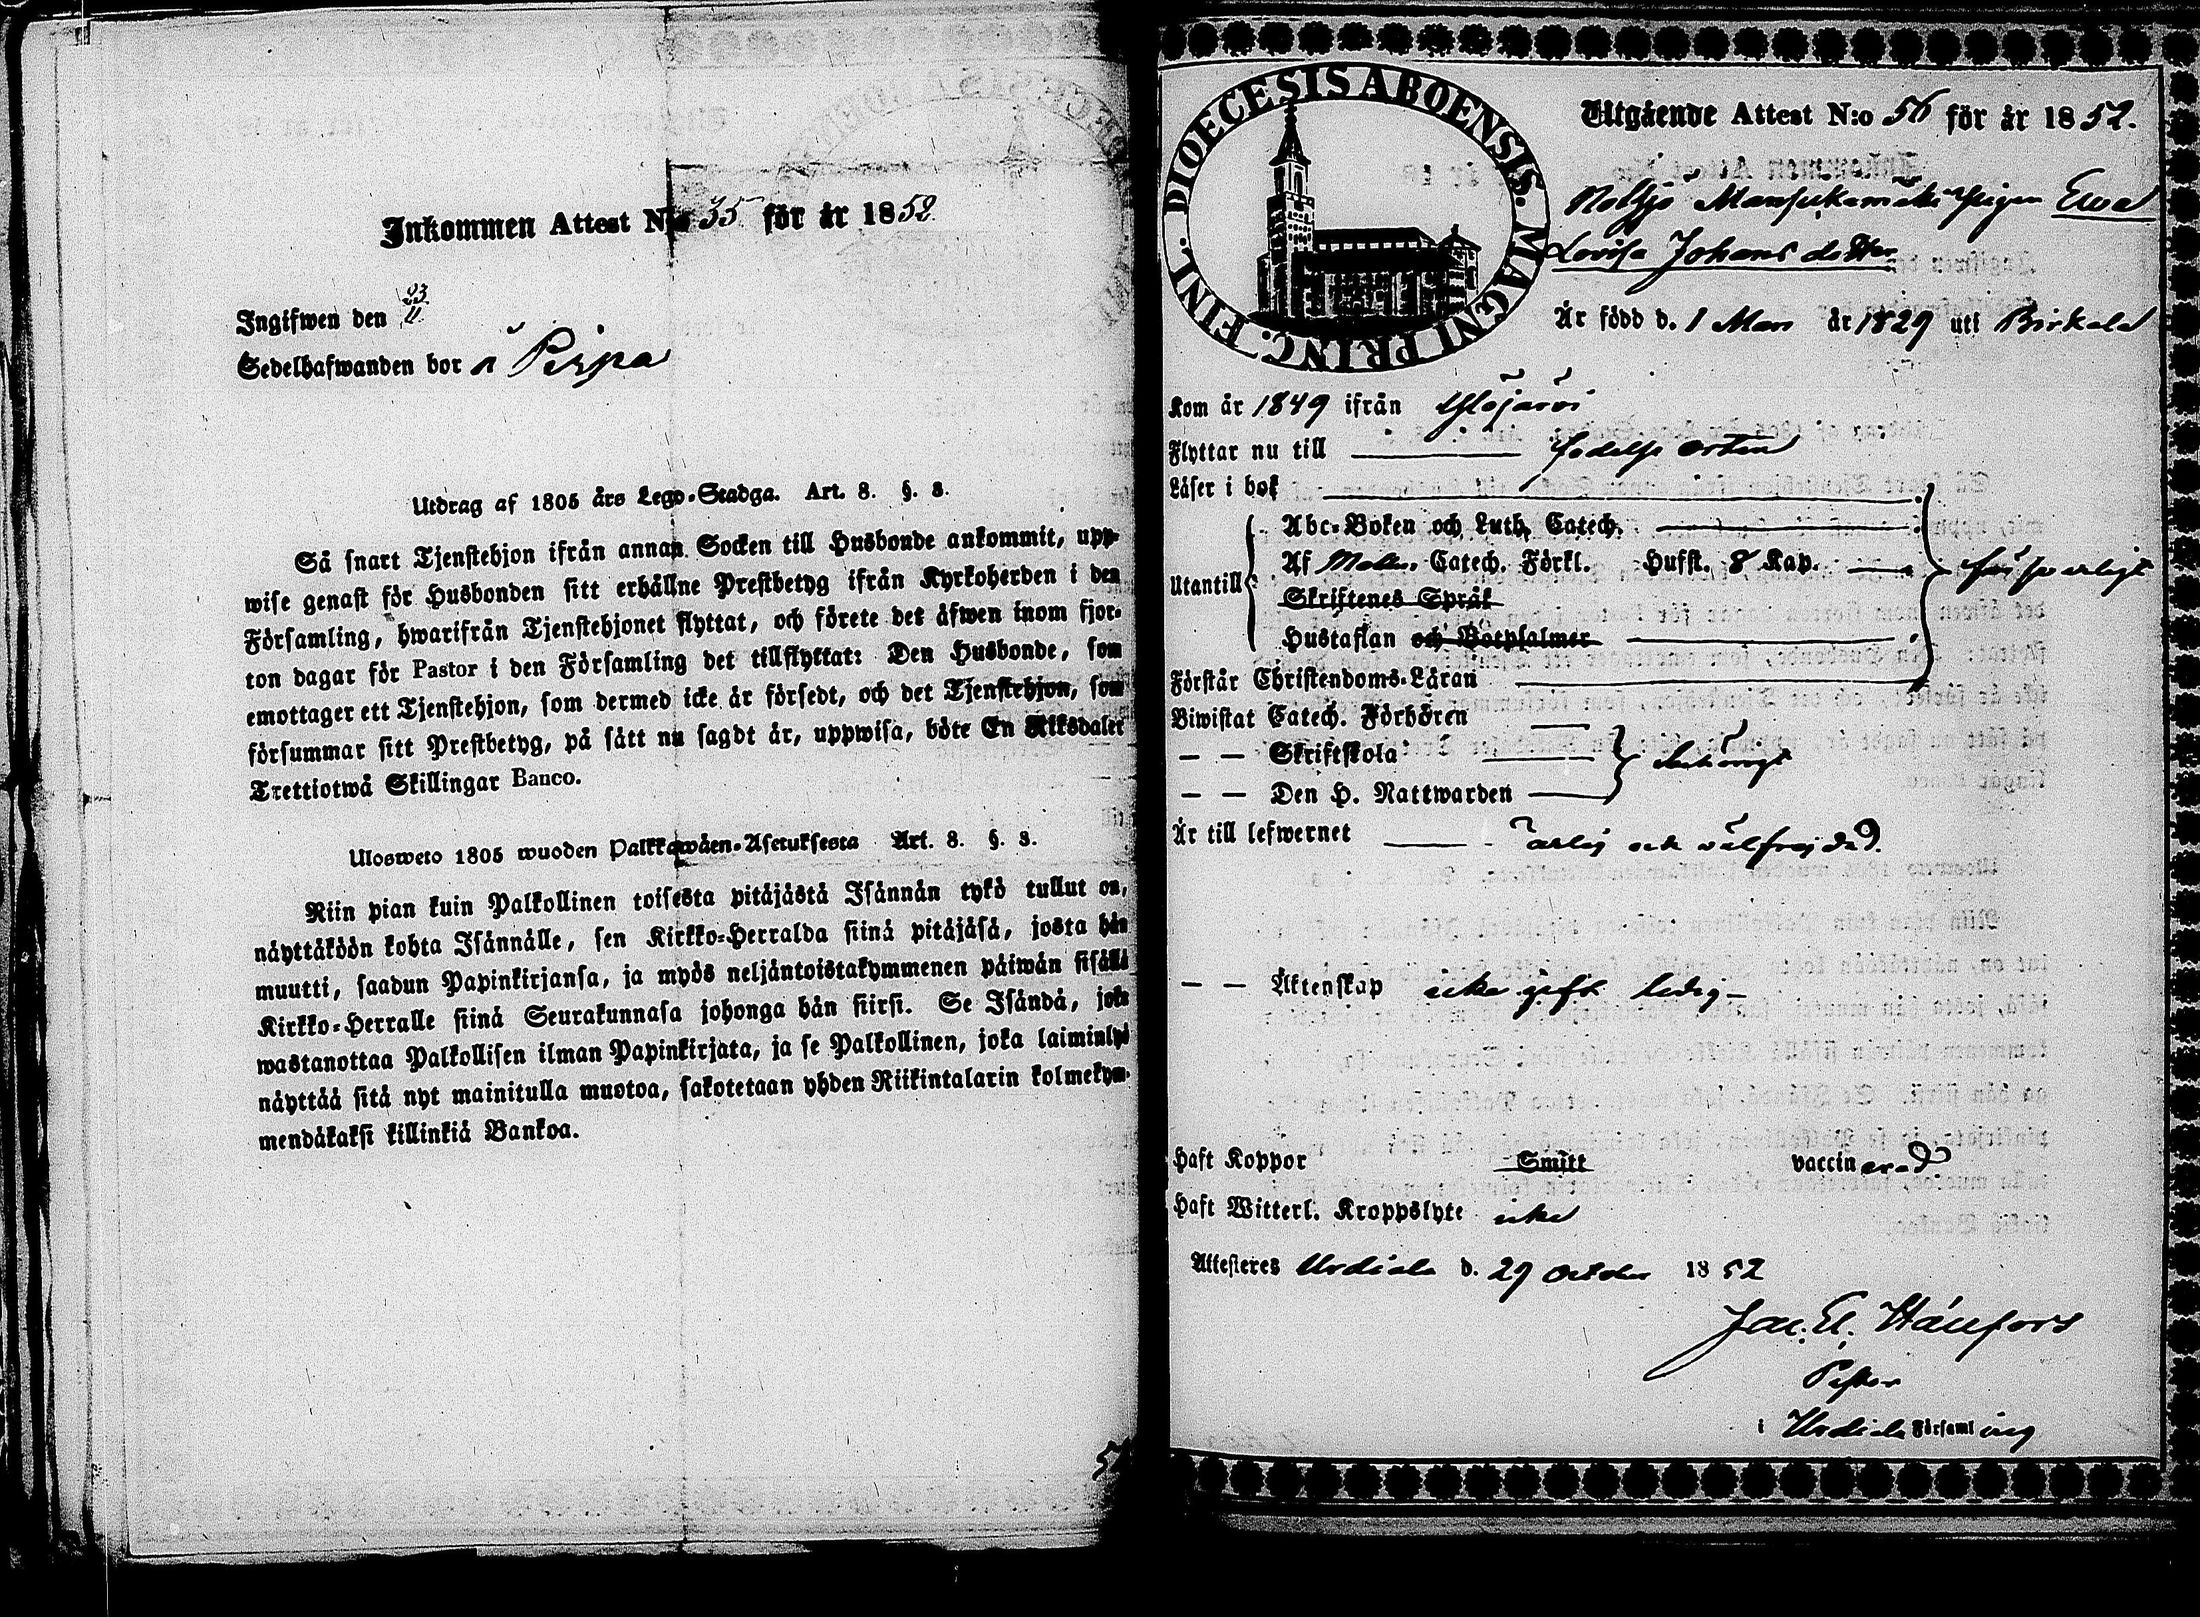 Inkommen Attest N:o 35 för år 1852
Ingifwen den 23/11
Sedelhafwanden bor å Pispa
Utdrag af 1805 års Lego-Stadga. Art. 8. §. 8.
Så snart Tjenstehjon ifrån annan Socken till Husbonde ankommit, upp-
wise genast för Husbonden sitt erhållne Prestbetyg ifrån Kyrkoherden i den
Församling, hwarifrån Tjenstehjonet flyttat, och förete det äfwen inom fjor-
ton dagar för Pastor i den Församling det tillflyttat: Den Husbonde, som
emottager ett Tjenstehjon, som dermed icke är försedt, och det Tjenstehjon, som
försummar sitt Prestbetyg, på sätt nu sagdt är, uppwisa, böte En Riksdaler
Trettiotwå Skillingar Banco.
Ulosweto 1805 wuoden Palkkawäen-Asetuksesta Art. 8. §. 8.
Niin pian kuin Palkollinen toisesta pitäjästä Isännän tykö tullut on,
näyttäköön kohta Isännälle, sen Kirkko-Herralda siinä pitäjäsä, josta hän
muutti, saadun Papinkirjansa, ja myös neljäntoistakymmenen päiwän sisällä
Kirkko-Herralle siinä Seurakunnasa johonga hän siirsi. Se Isändä, joka
wastanottaa Palkollisen ilman Papinkirjata, ja se Palkollinen, joka laiminlyö
näyttää sitä nyt mainitulla muotoa, sakotetaan yhden Riikintalarin kolmekym-
mendäkaksi killinkiä Bankoa.
DIOECESIS ABOENSIS. MAGNI PRINC. FINL.
Utgående Attest N:o 56 för år 1852.
pigan Ewa
Lovisa Johansdotter
Är född d. 1 Mars år 1829 uti Birkala
Kom år 1849 ifrån Ylöjärvi
Flyttar nu till födelse orten
Läser i bok
Abc-Boken och Luth. Catech.
Utantill Af Catech. Förkl. Hufst. 8 Kap. försvarligt
Skriftenes Språk
Hustaflan och Botpsalmer
Förstår Christendoms-Läran
Biwistat Catech. Förhören
— — Skriftskola behörigt
— — Den H. Nattwarden
Är till lefwernet ärlig och välfrejdad.
— — Äktenskap icke gift ledig
Haft Koppor Smitt vaccinerad
Haft Witterl. Kroppslyte icke
Attesteres Urdiala d. 29 October 1852
Jac. El.
Pastor
i Urdiala Församling